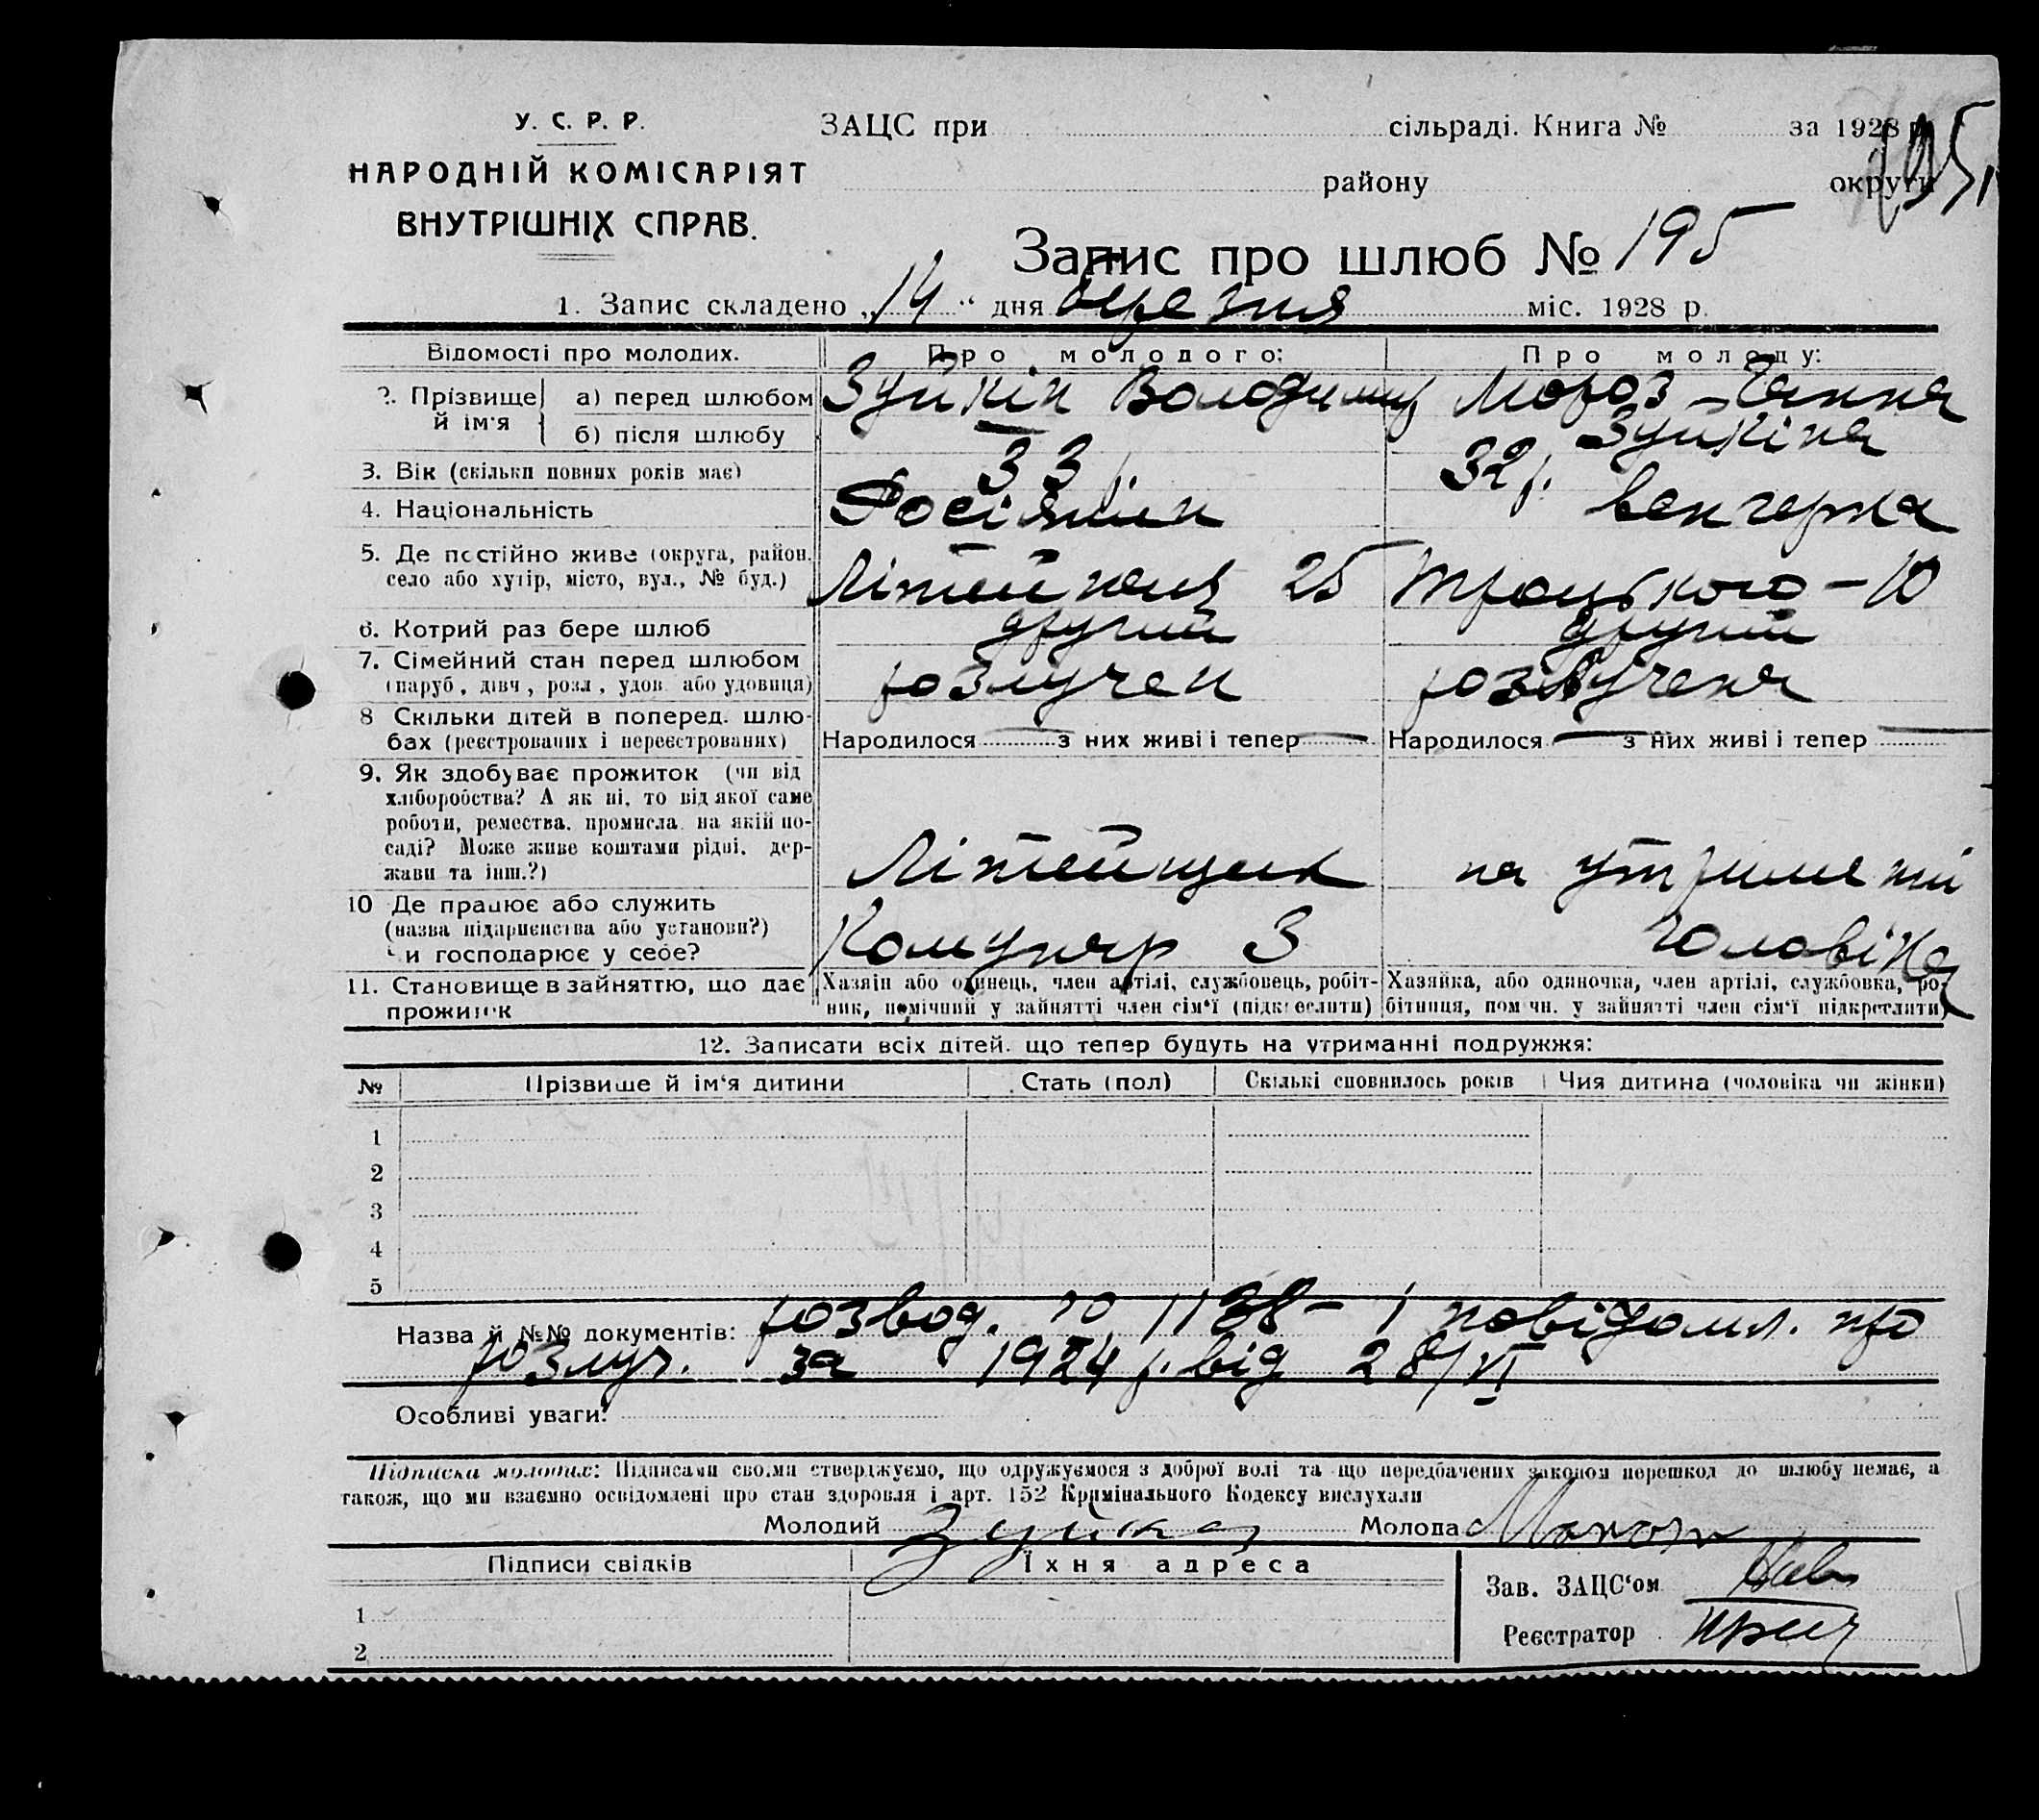 У. С. Р. Р.
НАРОДНІЙ КОМІСАРІЯТ
ВНУТРІШНІХ СПРАВ.
ЗАЦС при сільраді. Книга № за 1928 р.
району округи
195
Запис про шлюб № 195
1. Запис складено „14“ дня березня міс. 1928 р.
Відомості про молодих. Про молодого: Про молоду:
2. Прізвище й ім'я
а) перед шлюбом Зуйкін Володимир Мороз Ганна
б) після шлюбу Зуйкіна
3. Вік (скільки повних років має) 33 р. 32 р.
4. Національність Росіянин венгерка
5. Де постійно живе (округа, район,
село або хутір, місто, вул., № буд.) 25 Троцького – 10
6. Котрий раз бере шлюб другий другий
7. Сімейний стан перед шлюбом
(паруб, дівч, розл, удов або удовиця) розлучен розлучена
8 Скільки дітей в поперед. шлю-
бах (реєстрованих і нереєстрованих) Народилося — з них живі і тепер — Народилося — з них живі і тепер —
9. Як здобуває прожиток (чи від
хліборобства? А як ні, то від якої саме
роботи, ремества, промисла на якій по-
саді? Може живе коштами рідні, дер-
жави та інш.?) Літейщик на утриманні
10 Де працює або служить
(назва підприємства або установи?)
Чи господарює у себе? Комунар 3 чоловіка
11. Становище в зайняттю, що дає
прожиток
Хазяїн або одинець, член артілі, службовець, робіт-
ник, помічний у зайнятті член сім'ї (підкреслити)
Хазяйка, або одиночка, член артілі, службовка, ро-
бітниця, пом чн. у зайнятті член сім'ї підкреслити)
12. Записати всіх дітей, що тепер будуть на утриманні подружжя:
№ Прізвище й ім'я дитини Стать (пол) Скількі сповнилось років Чия дитина (чоловіка чи жінки)
1
2
3
4
5
Назва й №№ документів: розвод. 1138 – і повідомл. про
розлуч. за 1924 р. від 28/VI
Особливі уваги:
Підписка молодих: Підписами своїми стверджуємо, що одружуємося з доброї волі та що передбачених законом перешкод до шлюбу немає, а
також, що ми взаємно освідомлені про стан здоровля і арт. 152 Кримінального Кодексу вислухали
Молодий Молода
Підписи свідків Їхня адреса
Зав. ЗАЦС'ом
1
Реєстратор
2